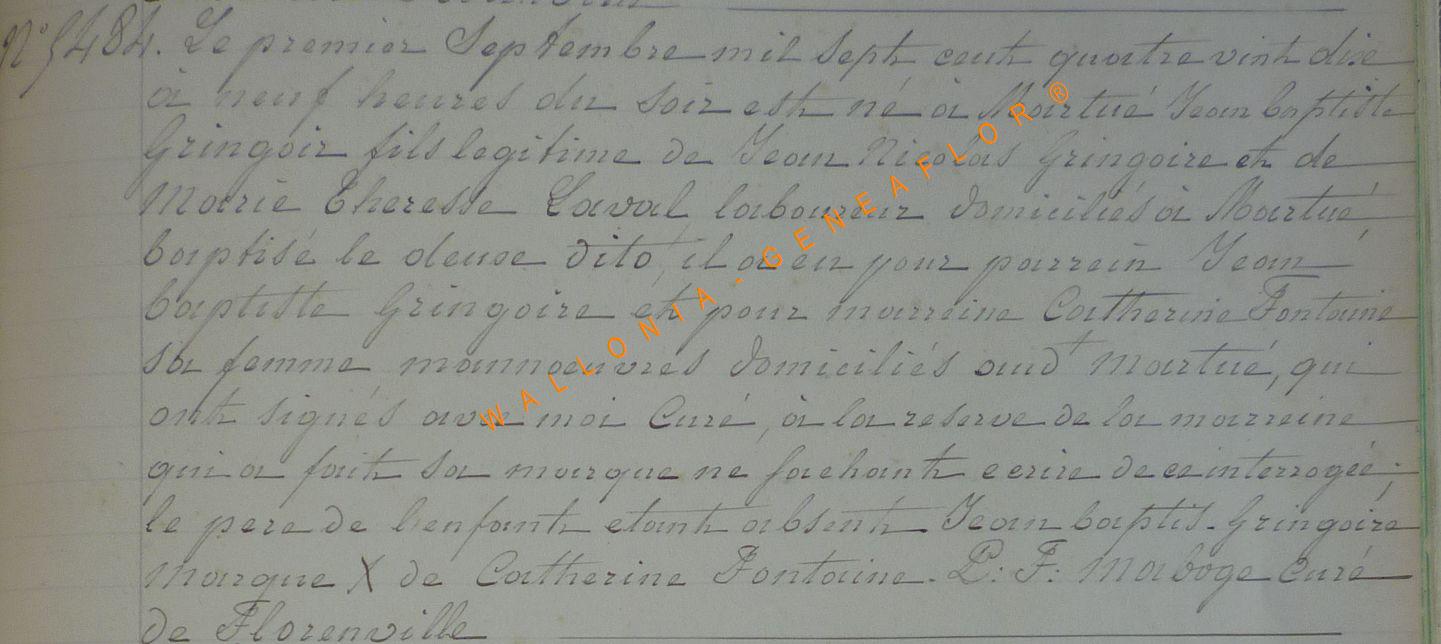 N° 5484. Le premier Septembre mil sept cent quatre vint dix
à neuf heures du soir est né à Martué Jean baptiste
Gringoir fils legitime de Jean Nicolas Gringoire et de
Marie Theresse Laval laboureur domiciliés à Martué
baptisé le deuxe dito, il a eu pour parrein Jean
baptiste Gringoire et pour marreine Catherine Fontaine
sa femme mannoeuvres domiciliés aud t Martué, qui
ont signés avec moi Curé, à la reserve de la marreine
qui a fait sa marque ne sachant ecrire de ce interrogéé;
le pere de l'enfant etant absent. Jean baptis. Gringoire
marque X de Catherine Fontaine. P: F: Maboge Curé
de Florenville
WALLONIA - GENEAFLOR ®